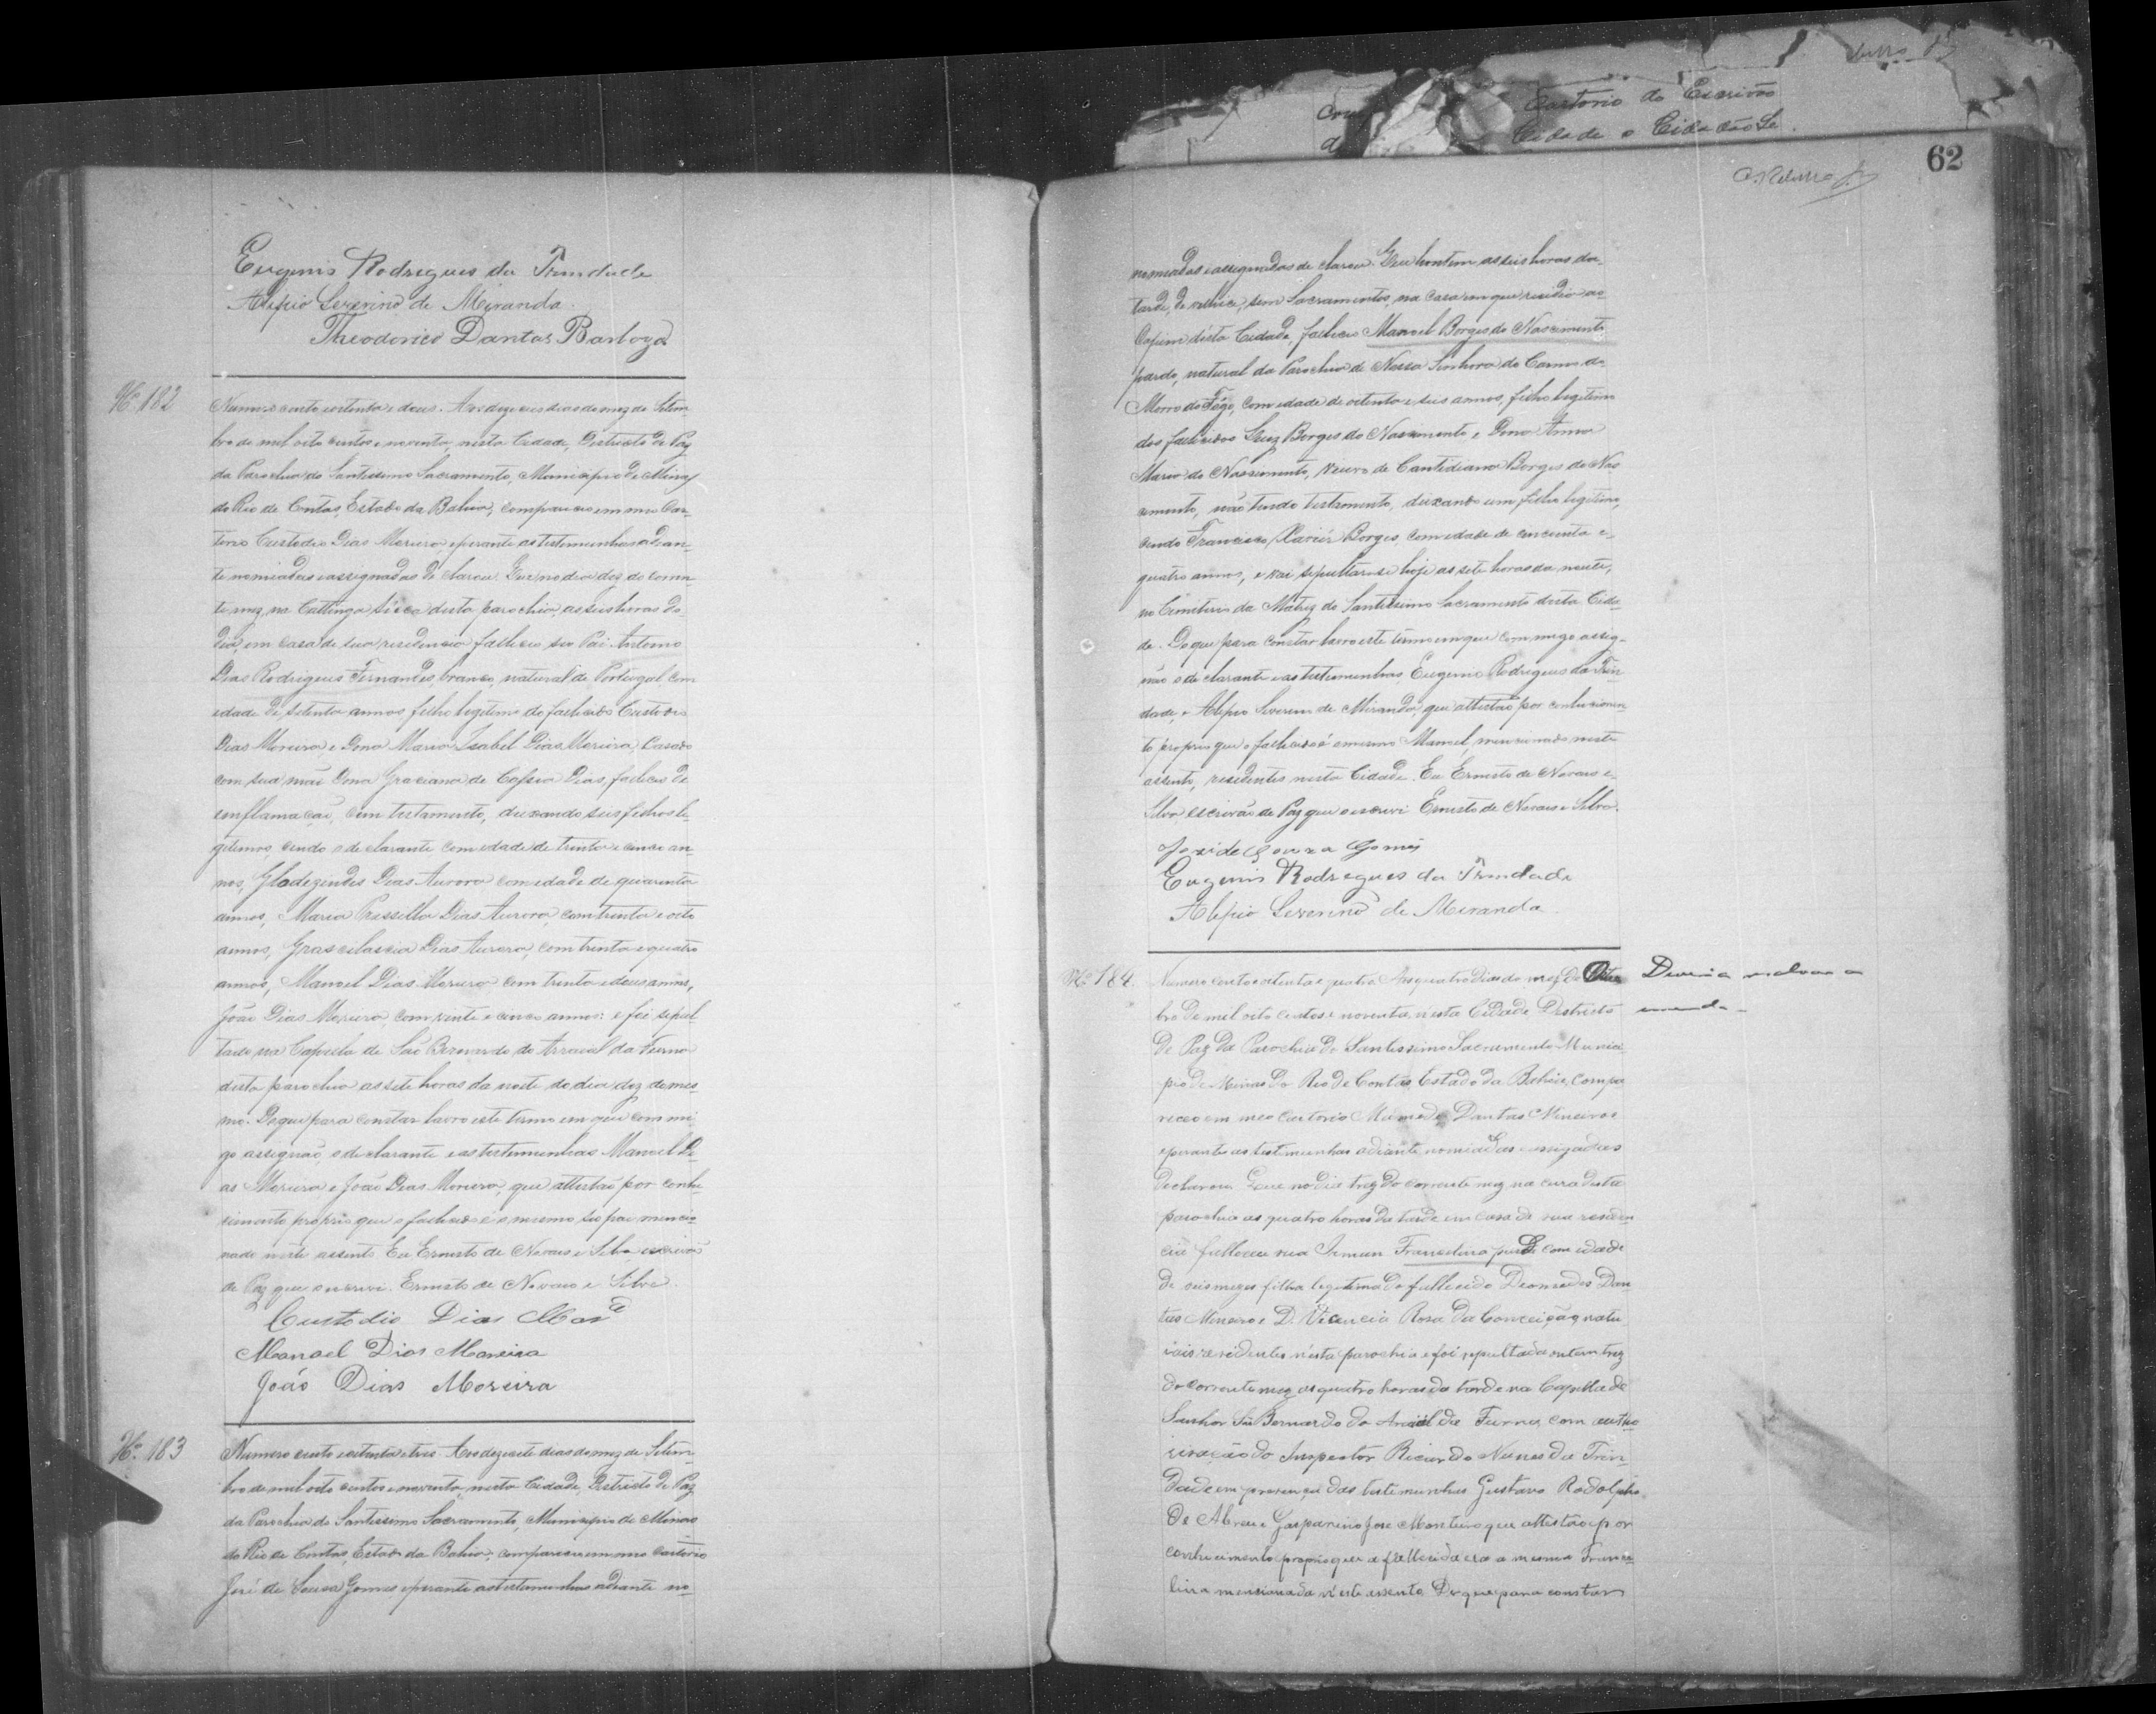 Eugenio Rodrigues da Trindade
Alipio Severino de Miranda.
Theodorico Dantas Barboza
Nº 182
Numero cento oitenta e dous. Aos dezeseis dias do mez de Setem
bro de mil oito centos e noventa, nesta Cidade, Districto de Paz
da Parochia do Santissimo Sacramento, Municipio de Minas
do Rio de Contas, Estado da Bahia, compareceo em meu Car
torio Custodio Dias Moreira, e perante as testemunhas adian-
te nomiadas e assignadas de clarou: Que no dia dez do corren
te mez, na Cattinga sêcca desta parochia, as seis horas do
dia, em casa de sua residencia falleceo seo Pai Antonio
Dias Rodrigues Fernandes, branco, natural de Portugal, com
edade de setenta annos, filho legitimo do fallecido Custodio
Dias Moreira e Dona Maria Izabel Dias Moreira, Casado
com sua mãe Dona Graciana de Cassia Dias, falleceo de
emflamação, sem testamento, deixando seis filhos le
gitimos, sendo o de clarante com edade de trinta e cinco an-
nos, Dias Aurora com edade de quarenta
annos, Maria Pressilla Dias Aurora, com trinta e oito
annos, Dias Aurora, com trinta e quatro
annos, Manoel Dias Moreira com trinta e dous annos,
João Dias Moreira, com vinte e cinco annos: e foi sepul
tado na Capella de São Bernardo do Arraial da Furna
desta parochia as sete horas da noite do dia dez do mes
mo. Do que para constar lavro este termo em que com mi
go assignão, o de clarante e as testemunhas Manoel Di
as Moreira, e João Dias Moreira, que attestão por conhe
cimento proprio que o fallecido é o mesmo seo pai mencio
nado neste assento. Eu Ernesto de Novaes e Silva escrivão
de Paz que o escrevi. Ernesto de Novaes e Silva.
Custodio Dias Morª
Manoel Dias Moreira
João Dias Moreira
Nº 183
Numero cento e oitenta e tres. Aos dezesete dias do mez de Setem-
bro de mil oito centos e noventa, nesta Cidade, Districto de Paz
da Parochia do Santissimo Sacramento, Municipio de Minas
do Rio de Contas, Estado da Bahia, compareceu em meu cartorio
José de Sousa Gomes, e perante as testemunhas adiante no-
Cartorio do Escrivão
Cidade o Cidadão
62
nomiadas e assignadas de clarou: Que hontem as seis horas da
tarde, de velhice, sem Sacramentos, na casa em que residia ao
desta Cidade, falleceo Manoel Borges do Nascimento
pardo, natural da Parochia de Nossa Senhora do Carmo do
Morro do Fogo, com edade de oitenta e seis annos, filho legitimo
dos fallecidos Luiz Borges do Nascimento e Dona Anna
Maria do Nascimento, viuvo de Cantidiana Borges do Nas
cimento, não tendo testamento, deixando um filho legitimo,
sendo Francisco Xavier Borges, com edade de cincoenta e
quatro annos, e vai sepultar-se hoje as sete horas da noute,
no Cemiterio da Matriz do Santissimo Sacramento desta Cida
de. Do que para constar lavro este termo em que com migo assig-
não o de clarante e as testemunhas, Eugenio Rodrigues da Trin
dade, e Alipio Severino de Miranda, que attestão por conhecimen
to proprio que o fallecido é o mesmo Manoel, mencionado neste
assento, residentes nesta Cidade. Eu Ernesto de Novaes e
Silva escrivão de Paz que o escrevi Ernesto de Novaes e Silva.
José de Souza Gomes
Eugenio Rodrigues da Trindade
Alipio Severino de Miranda.
Nº 184.
Numero cento e oitenta e quatro Aos quatro dias do mez de Outu
bro de mil oito centos e noventa, n'esta Cidade Districto
de Paz da Parochia do Santissimo Sacramento Munici
pio de Minas do Rio de Contas, Estado da Bahia, compa
receo em meo Cartorio Mamede Dantas Mineiro e
e perante as testemunhas adiante nomiadas e
declarou Que no dia trez do corrente mez na desta
parochia as quatro horas da tarde em casa de sua residen
cia falleceu sua Irman Francelina parda com idade
de seis mezes filha legitima do fallecido Deomedes Dan
tas Mineiro e D. Vicencia Rosa da Conceição, natu
raes residentes n'esta parochia e foi sepultada ontem trez
do corrente mez as quatro horas da tarde na Capella de
Senhor São Bernardo do Arraial da Furna, com autho
risação do Inspector Ricardo Nunes da Trin-
dade em presença das testemunhas Gustavo Rodolpho
de Abreu e Gasparino José Monteiro que attestão por
conhecimento proprio que a fallecida é a mesma France
lina mencionada n'este assento. Do que para constar
Devia resalvar a
emenda